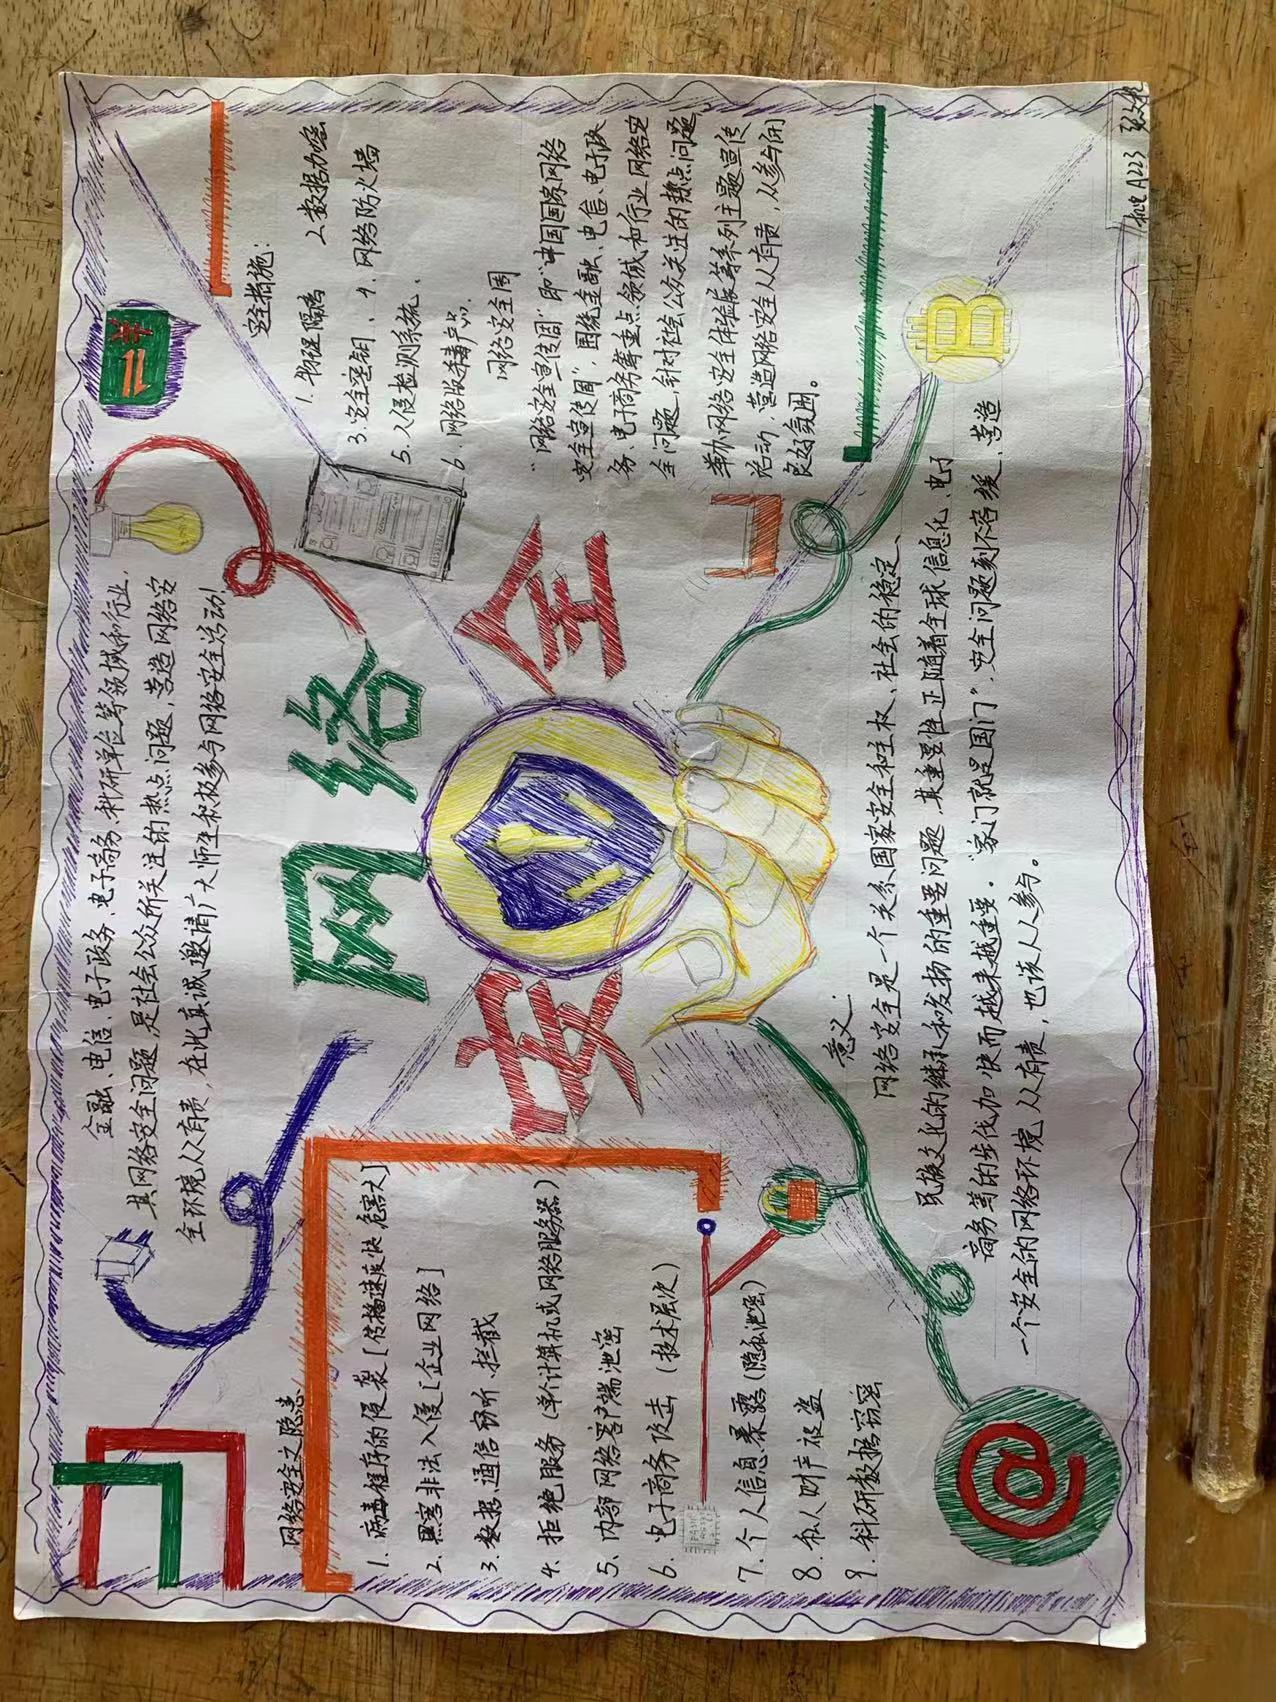 金融、电信、电子政务、电子商务、科研单位等领域和行业,
其网络安全问题,是社会公众所关注的热点问题,营造网络安
全环境人人有责,在此真诚邀请广大师生积极参与网络安全活动!
网络
安全
网络安全之隐患
1. 病毒程序的侵袭[传播速度快 危害大]
2. 黑客非法入侵[企业网络]
3. 数据,通信窃听、拦截
4. 拒绝服务(单个计算机或网络服务器)
5、内部网络客户端泄密
6. 电子商务攻击(技术层次)
7. 个人信息暴露(隐私泄密)
8. 私人财产被盗
9. 科研数据窃密
@
安全措施:
1. 物理隔离 2. 数据加密
3. 安全密钥、4. 网络防火墙
5. 入侵检测系统、
6. 网络版杀毒产品.
网络安全周
“网络安全宣传周”即“中国国家网络
安全宣传周”,围绕金融、电信、电子政
务、电子商务等重点领域和行业网络安
全问题,针对社会公众关注的热点问题
举办网络安全体验展等系列主题宣传
活动,营造网络安全人人有责,人人参与的
良好氛围。
B
意义:
网络安全是一个关系国家安全和主权、社会的稳定、
民族文化的继承和发扬的重要问题,其重要性,正随着全球信息化、电子
商务等的步伐加快而越来越重要。“家门就是国门”,安全问题刻不容缓、营造
一个安全的网络环境,人人有责,也该人人参与。
A223